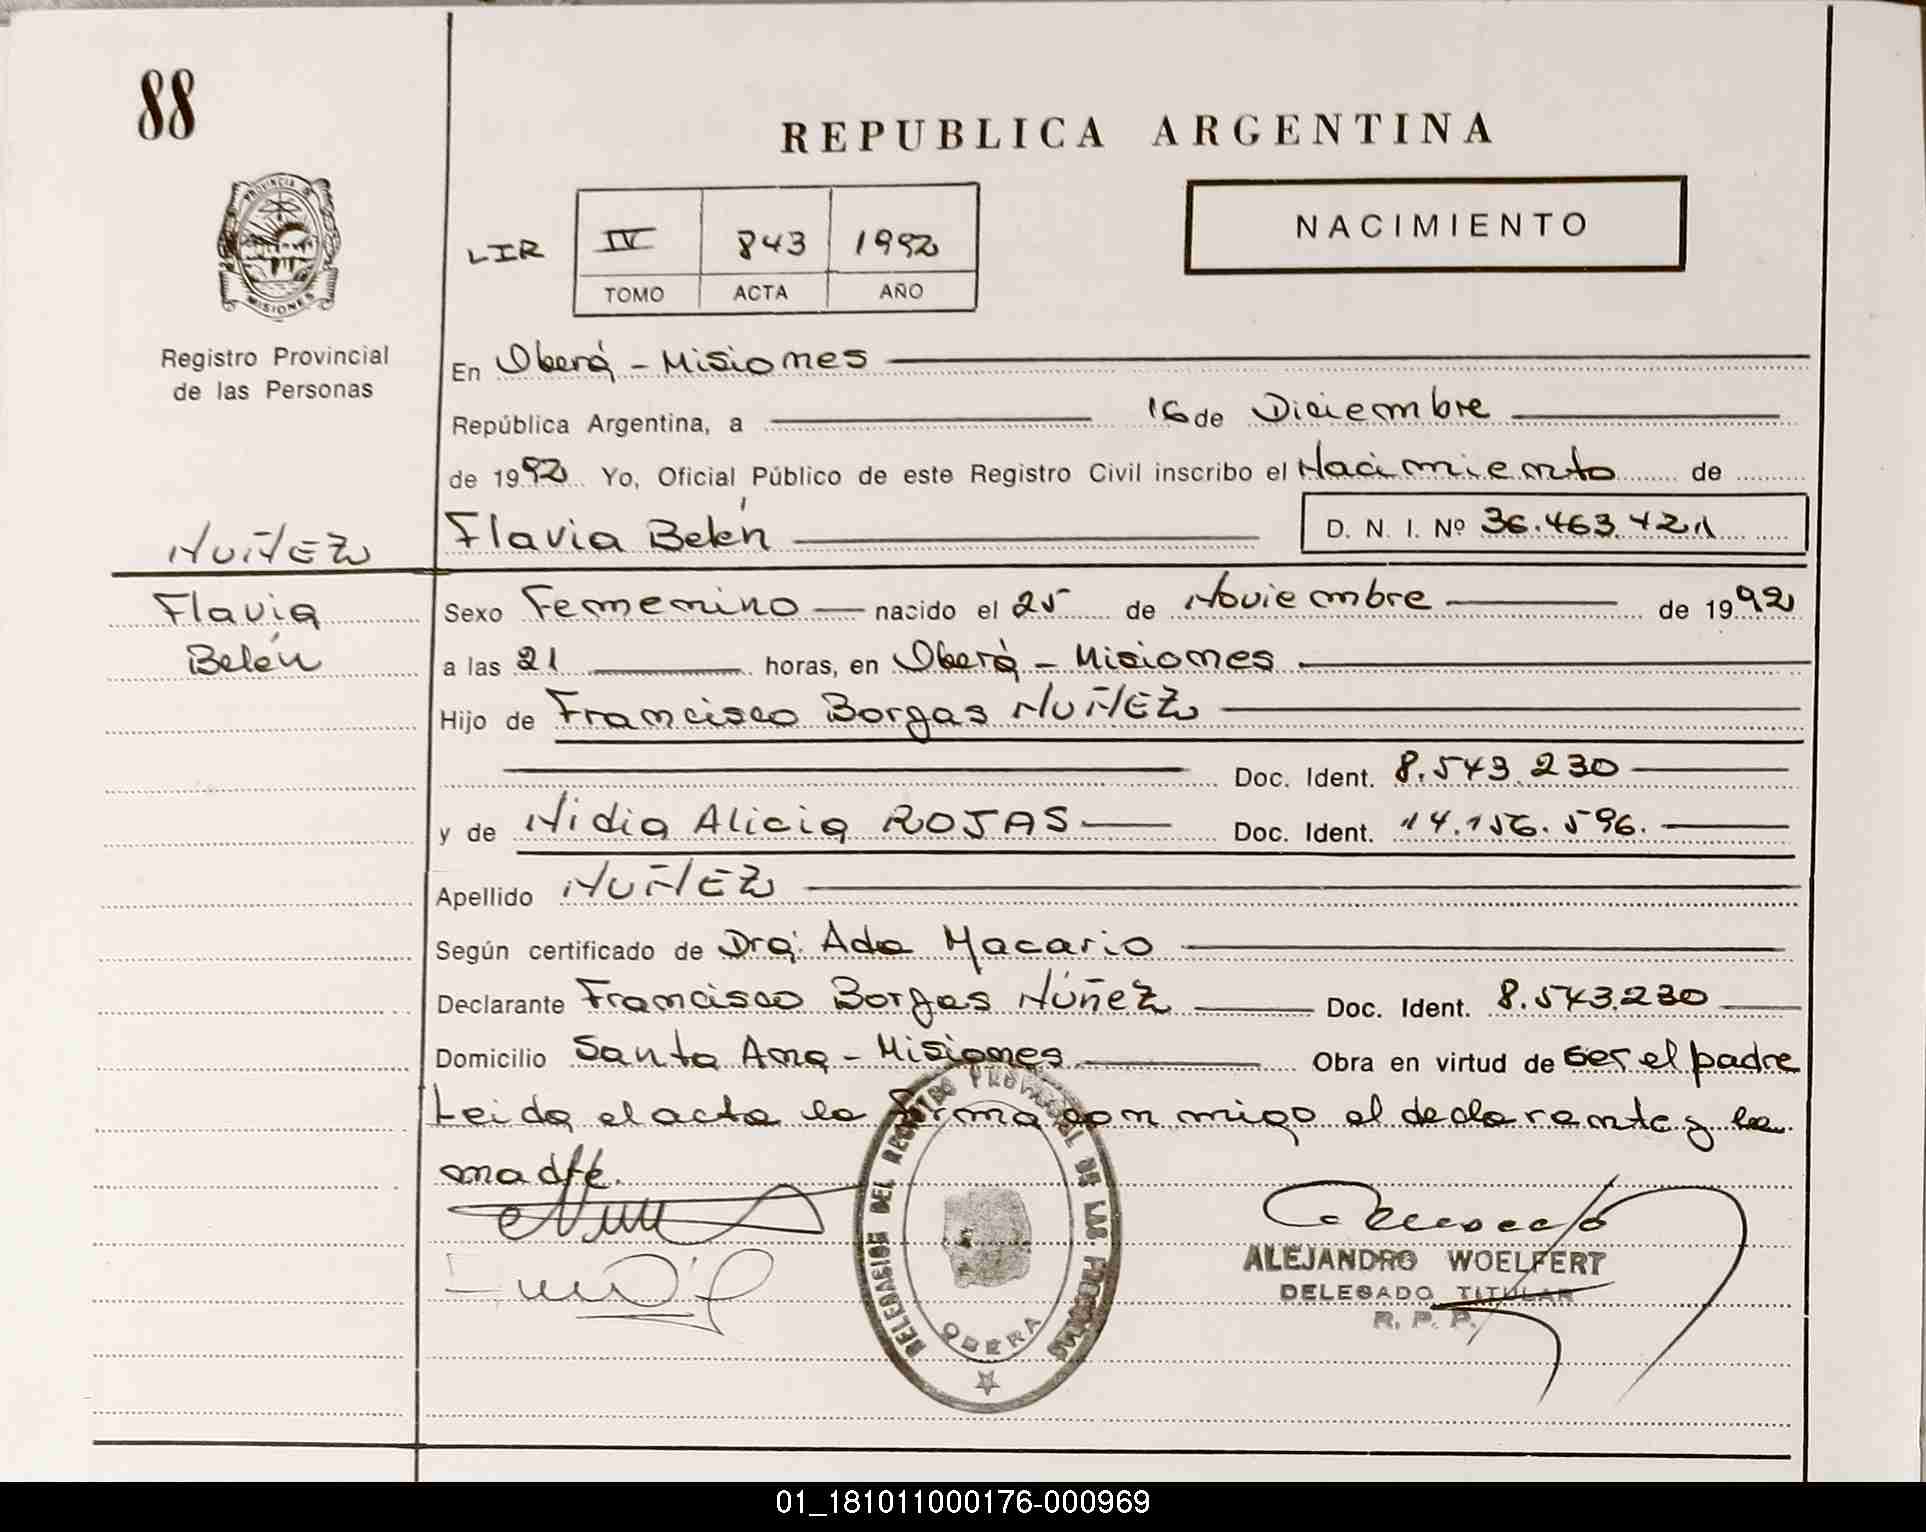 88
REPUBLICA ARGENTINA
PROVINCIA DE MISIONES
Registro Provincial
de las Personas
LIR IV 843 1992
TOMO ACTA AÑO
NACIMIENTO
En Oberá - Misiones
República Argentina, a 16 de Diciembre
de 1992 Yo, Oficial Público de este Registro Civil inscribo el Nacimiento de
NUÑEZ
Flavia Belén D. N. I. Nº 36.463.421
Flavia
Belén
Sexo Femenino nacido el 25 de Noviembre de 1992
a las 21 horas, en Oberá - Misiones
Hijo de Francisco Borgas NUÑEZ
Doc. Ident. 8.543.230
y de Nidia Alicia ROJAS Doc. Ident. 14.156.596.
Apellido NUÑEZ
Según certificado de Dra: Ada Macario
Declarante Francisco Borgas Núñez Doc. Ident. 8.543.230
Domicilio Santa Ana - Misiones Obra en virtud de ser el padre
Leida el acta la firma conmigo el declarante y la
madre.
DELEGACION DEL REGISTRO PROVINCIAL DE LAS PERSONAS
OBERA
ALEJANDRO WOELFERT
DELEGADO TITULAR
R. P. P.
01_181011000176-000969